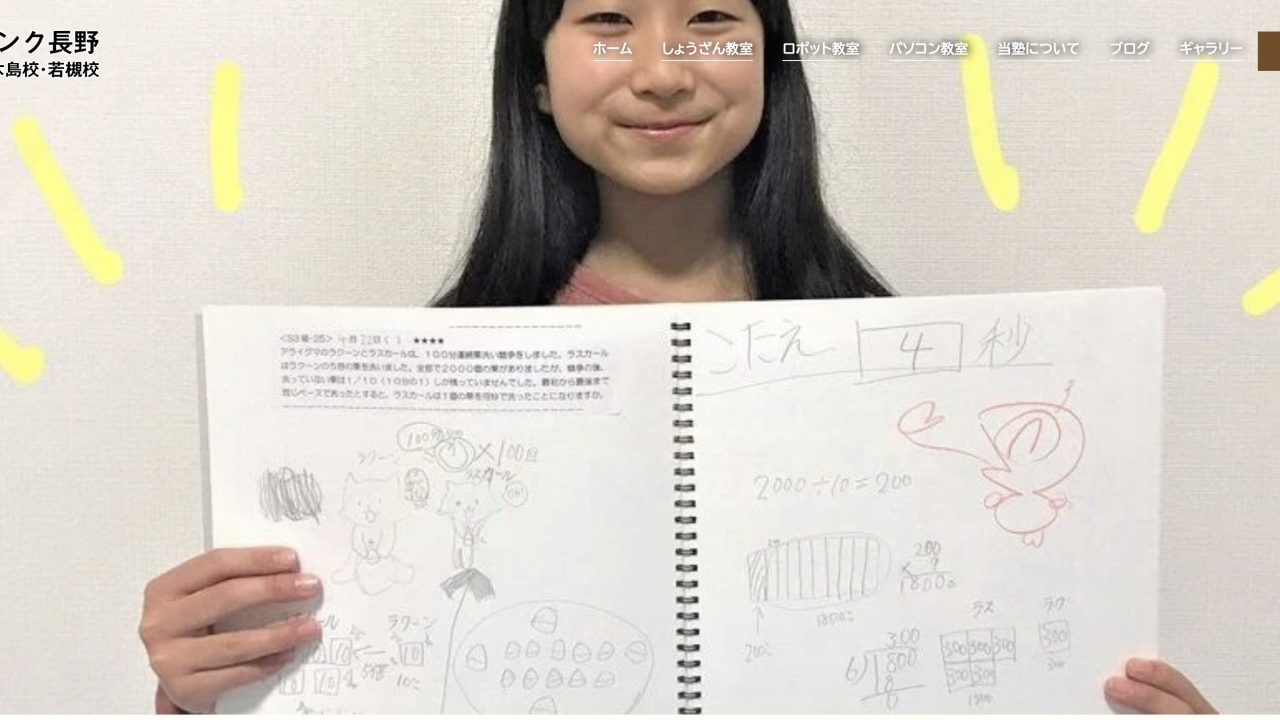 ンク長野
木島校・若槻校
ホーム しょうざん教室 ロボット教室 パソコン教室 当塾について ブログ ギャラリー
<S3級-25> 4月22日( ) ★★★★
アライグマのラクーンとラスカールは、100分連続栗洗い競争をしました。ラスカール
はラクーンの5倍の栗を洗いました。全部で2000個の栗がありましたが、競争の後、
洗っていない栗は1/10(10分の1)しか残っていませんでした。最初から最後まで
同じペースで洗ったとすると、ラスカールは1個の栗を何秒で洗ったことになりますか。
100分
×100目
ラクーン
ラスカール
ラクーン
5倍
10こ
こたえ 4 秒
2000÷10=200
200
×9
1800こ
1800こ
200こ
300
6)1800
ラス
ラク
300 300 300
300 300
300
1500
300